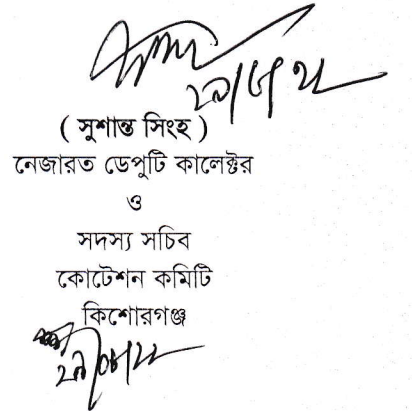 ( সুশান্ত সিংহ )
নেজারত ডেপুটি কালেক্টর
ও
সদস্য সচিব
কোটেশন কমিটি
কিশোরগঞ্জ